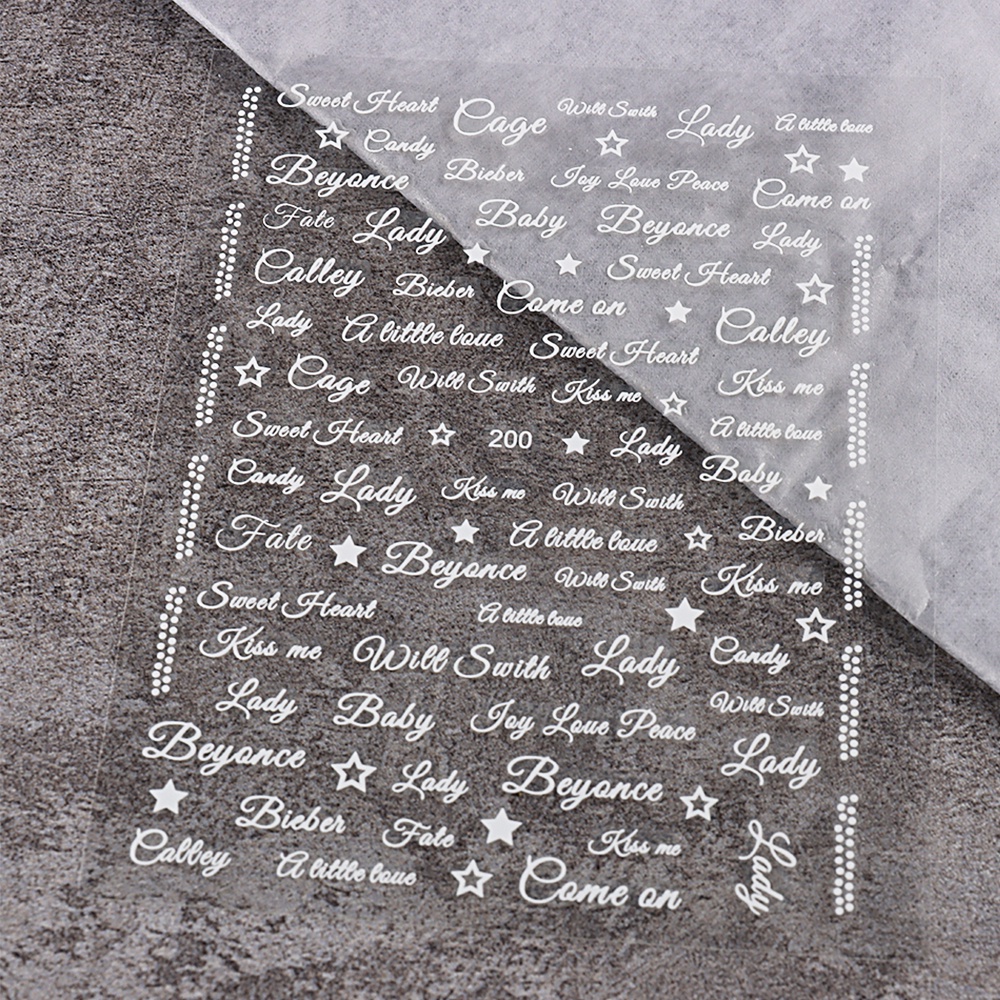 Sweet Heart Cage Will Swith Lady A little loue
Candy
Beyonce Bieber Joy Loue Peace Come on
Fate Lady Baby Beyonce Lady
Calley Bieber Come on Sweet Heart Calley
Lady A little loue Sweet Heart
Cage Will Swith Kiss me Kiss me
Sweet Heart 200 Lady A little loue
Candy Lady Kiss me Will Swith Baby
Fate A little loue Bieber
Beyonce Will Swith Kiss me
Sweet Heart A little loue
Kiss me Will Swith Lady Candy
Lady Baby Joy Loue Peace Will Swith
Beyonce Lady Beyonce Lady
Bieber Fate Kiss me
Calley A little loue Come on Lady